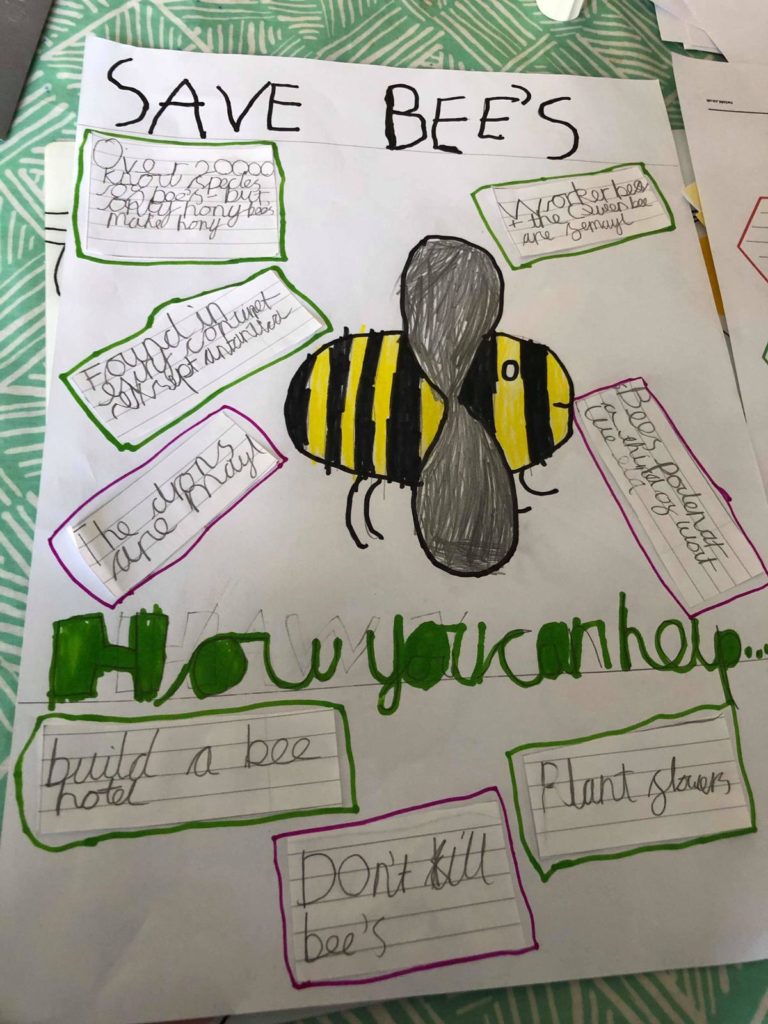 SAVE BEE'S
Over 20000
knowt species
of bee's - but
only hony bees
make hony
Worker bees
+ the Queen bee
are femayl
Found in
evry
exsept
The drons
are mayl
Bees
a third of wot
we
How you can help...
build a bee
hotel
Plant flowers
DOn't kill
bee's